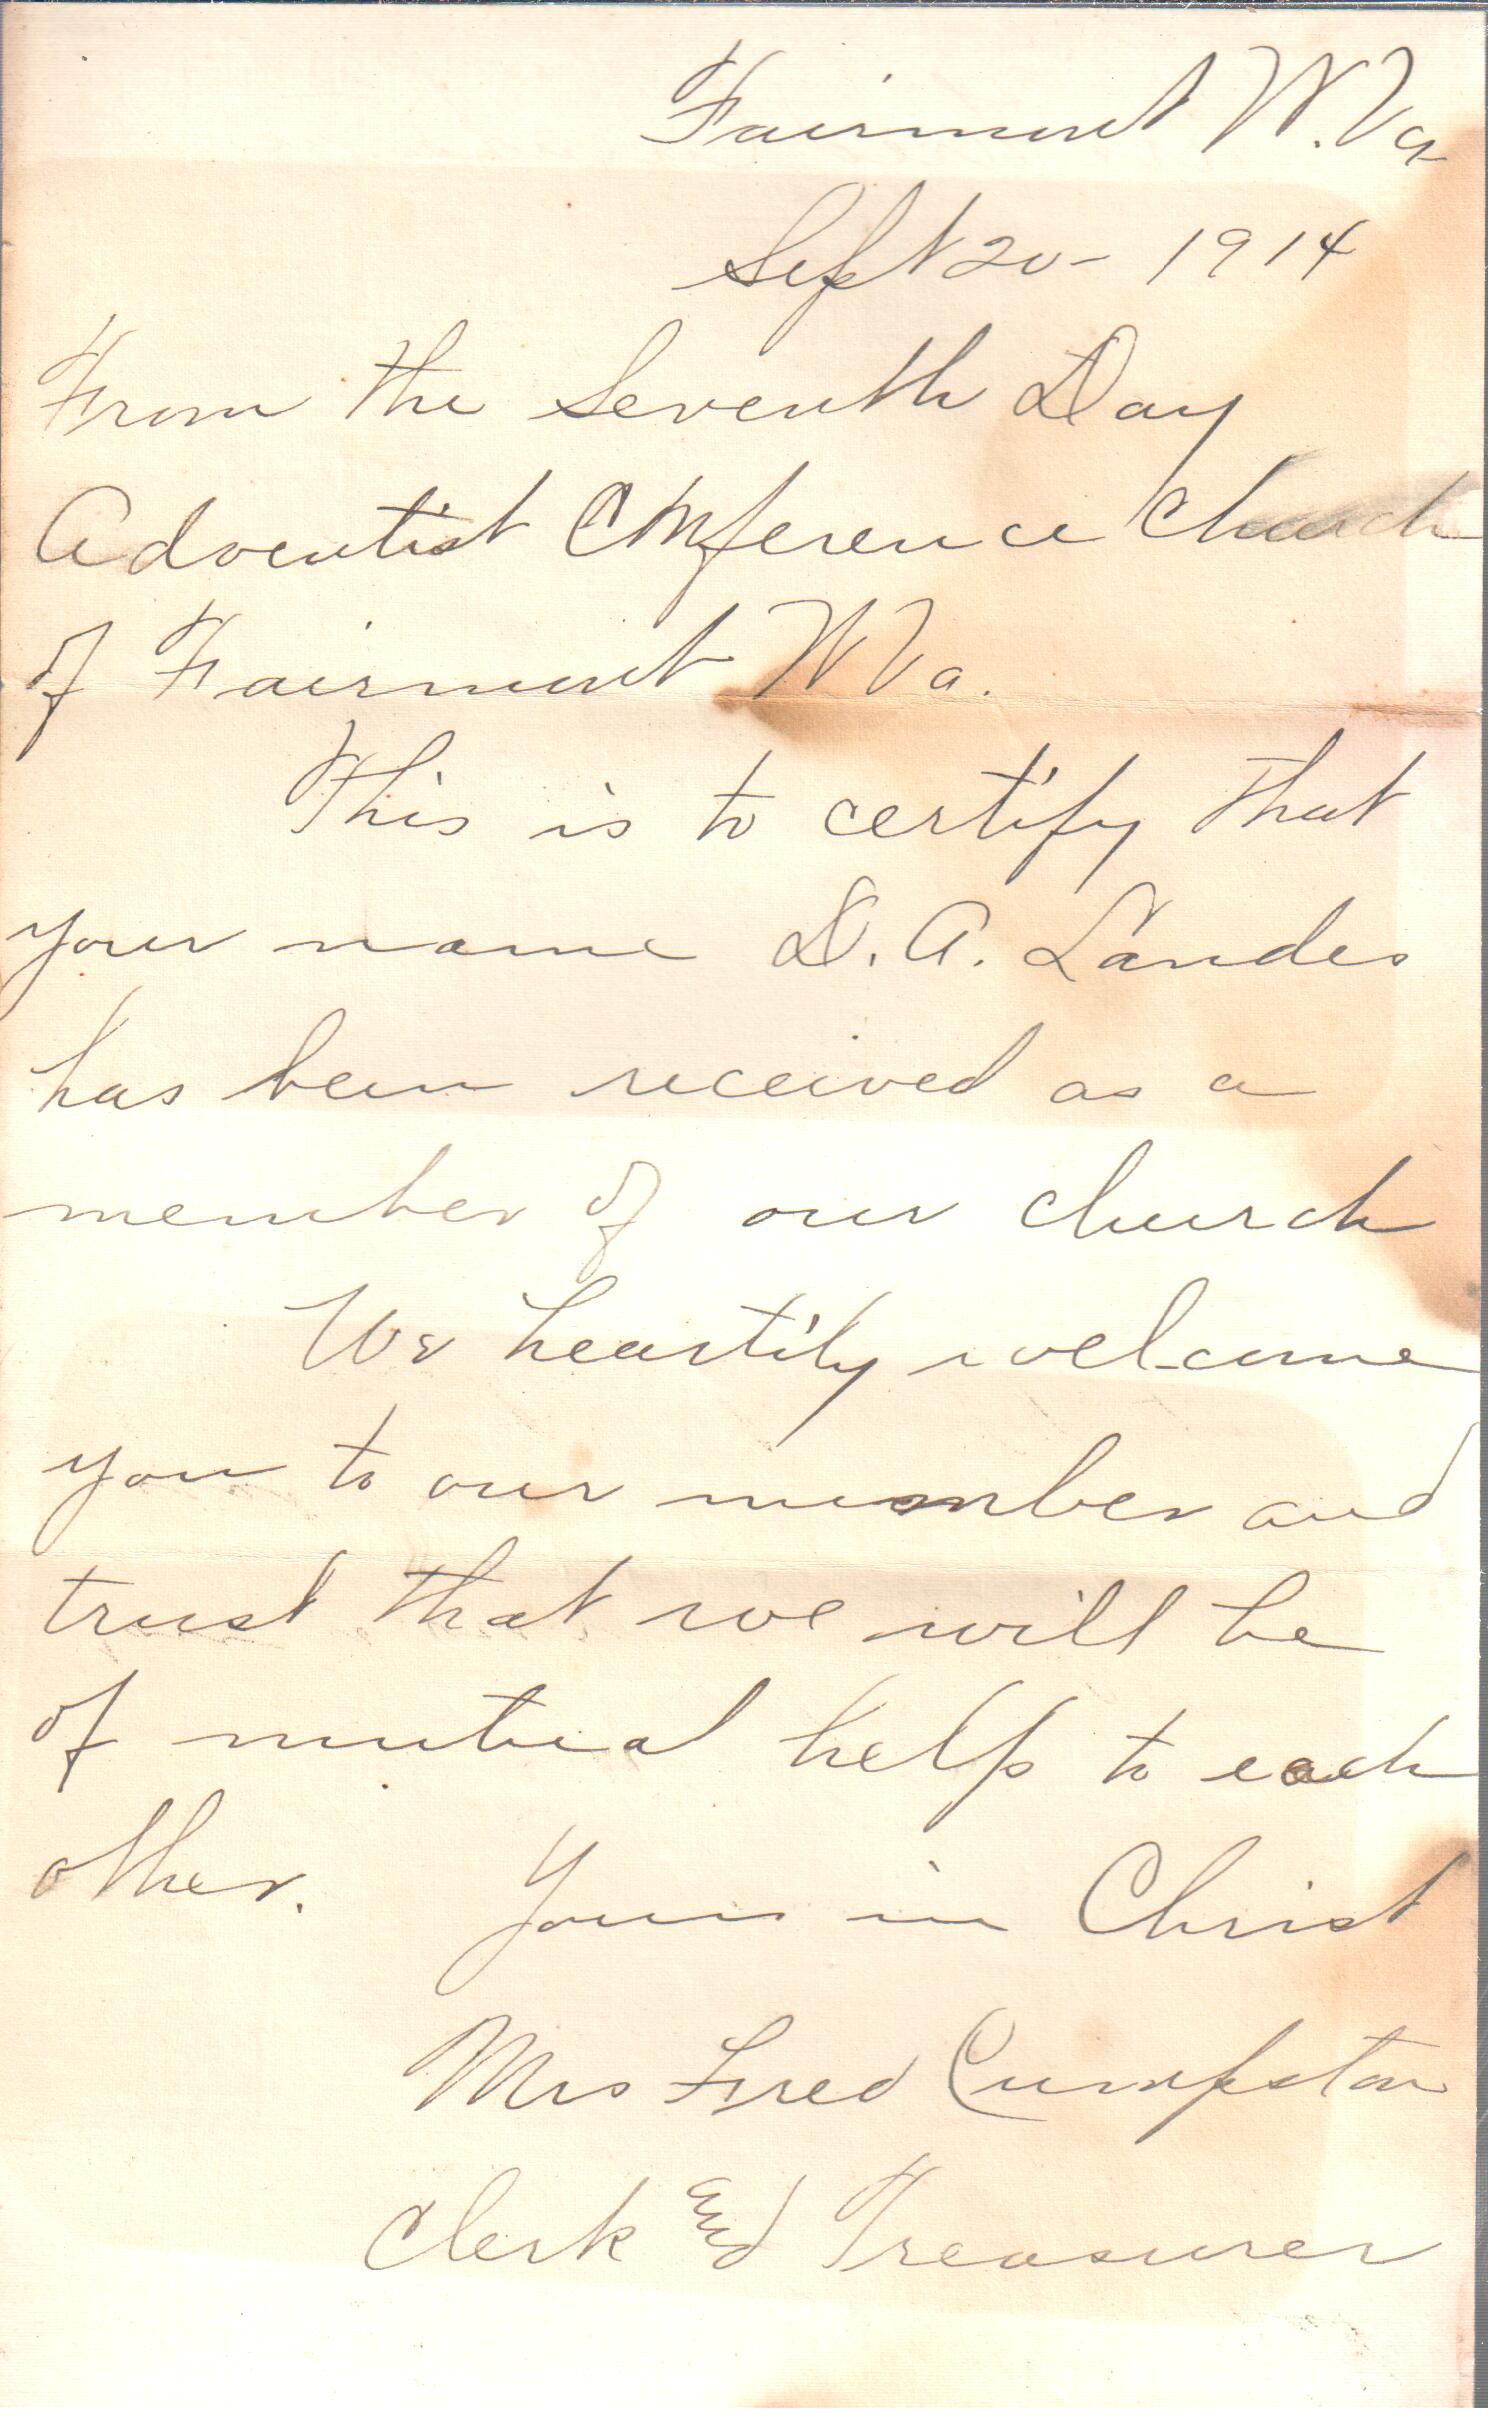 Fairmont W. Va
Sept 20 - 1914
From the Seventh Day
Adventist Conference Church
of Fairmont W Va.
This is to certify that
your name D. A. Landes
has been received as a
member of our church
We heartily welcome
you to our number and
trust that we will be
of mutual help to each
other. Yours in Christ
Mrs Fred Cumpston
Clerk and Treasurer